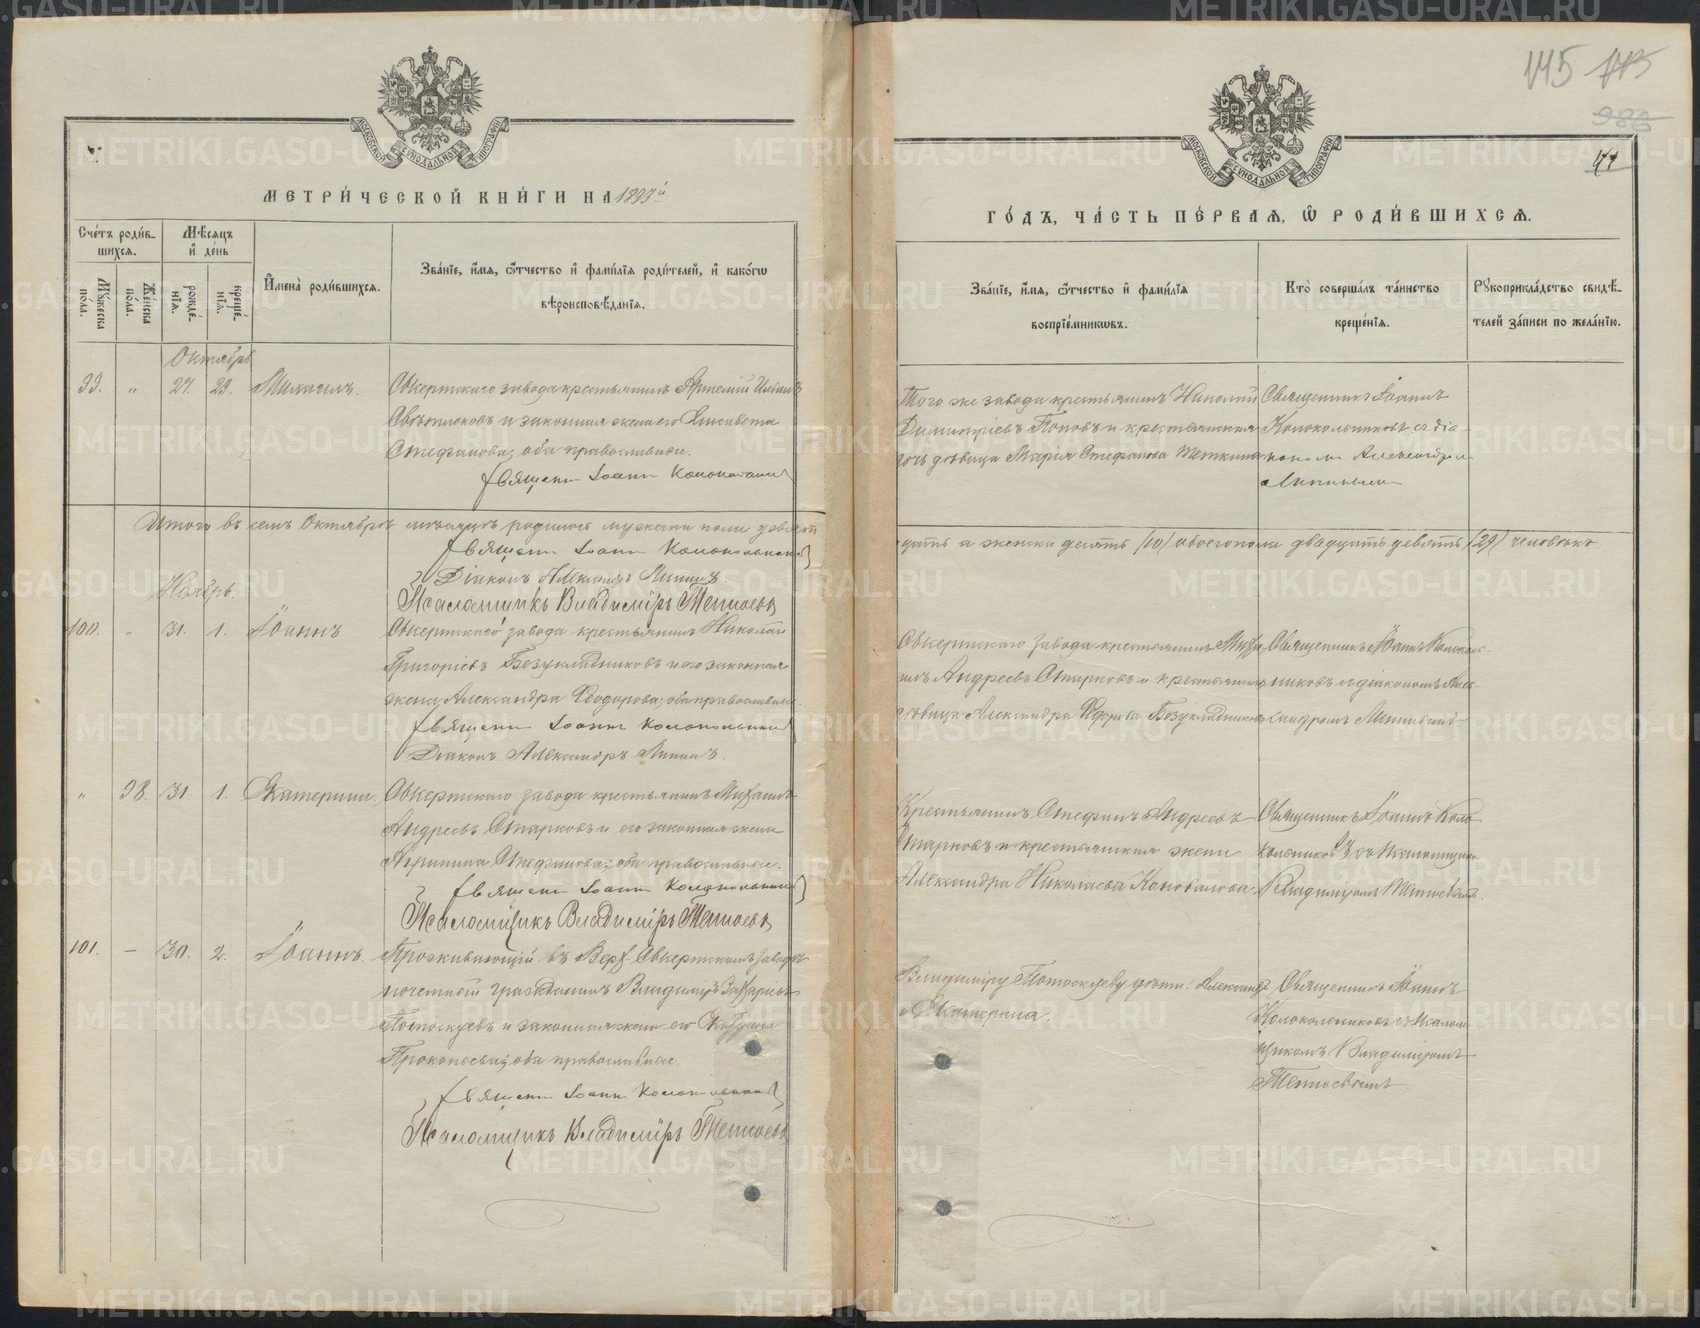 МЕТРИ́ЧЕСКОЙ КНИ́ГИ НА 1893й
Сче́тъ роди́в-
шихсѧ.
Мѣ́сѧцъ
и҆ де́нь
Мꙋ́жеска
по́ла.
Же́нска
по́ла.
рожде́-
нїѧ.
креще́-
нїѧ.
И҆мена̀ роди́вшихсѧ.
Зва́нїе, и҆́мѧ, ѻ҆́тчество и҆ фами́лїѧ роди́телей, и҆ како́гѡ
вѣроисповѣ́данїѧ.
Октябрь
99. " 27. 29. Михаилъ. Сысертскаго завода крестьянинъ Артемій
и законная жена его Елисавета
Стефанова; оба православные.
Священн Іоаннъ Колокольниковъ
Итого въ семъ Октябрѣ мѣсяцѣ родилось мужеска пола девят
Священн Іоаннъ Колокольниковъ
Діаконъ Александръ
Псаломщикъ Владиміръ
Ноябрь.
100. " 31. 1. Іоаннъ Сысертскаго завода крестьянинъ Николай
Григоріевъ Безукладниковъ и его законная
жена Александра Ѳеодорова; оба православные.
Священн Іоаннъ Колокольниковъ
Діаконъ Александръ
" 98. 31. 1. Екатерина. Сысертскаго завода крестьянинъ Михаилъ
Андреевъ Старковъ и его законная жена
Стефанова; оба православные.
Священн Іоаннъ Колокольниковъ
Псаломщикъ Владиміръ
101. – 30. 2. Іоаннъ. Проживающій въ Верх Сысертскомъ заводѣ
почетный гражданинъ Владиміръ Захаріевъ
Потоскуевъ и законная жена его
Прокопьева; оба православные.
Священн Іоаннъ Колокольниковъ
Псаломщикъ Владиміръ
145
71
ГО́ДЪ, ЧА́СТЬ ПЕ́РВАѦ, Ѡ҆ РОДИ́ВШИХСѦ.
Зва́нїе, и҆́мѧ, ѻ҆́тчество и҆ фами́лїѧ
воспрїе́мникѡвъ.
Кто̀ соверша́лъ та́инство
креще́нїѧ.
Рꙋкоприкла́дство свидѣ́-
телей за́писи по жела́нїю.
Того же завода крестьянинъ Николай
Димитріевъ Поповъ и крестьянская
дочь дѣвица Марія Стефанова
Священникъ Іоаннъ
Колокольниковъ съ діа
кономъ Александромъ
цать а женска десять (10) обоего пола двадцать девять (29) человѣкъ
Сысертскаго завода крестьянинъ Миха
илъ Андреевъ Старковъ и крестьянская
дѣвица Александра Ѳедорова Безукладникова
Священникъ Іоаннъ Колоколь-
никовъ съ діакономъ Алек-
сандромъ
Крестьянинъ Стефанъ Андреевъ
Старковъ и крестьянская жена
Александра Николаева Коновалова.
Священникъ Іоаннъ Коло
кольниковъ съ Псаломщикомъ
Владиміромъ
Владиміру Потоскуеву дѣти: Александръ
и Екатерина.
Священникъ Іоаннъ
Колокольниковъ съ Псалом
щикомъ Владиміромъ
METRIKI.GASO-URAL.RU